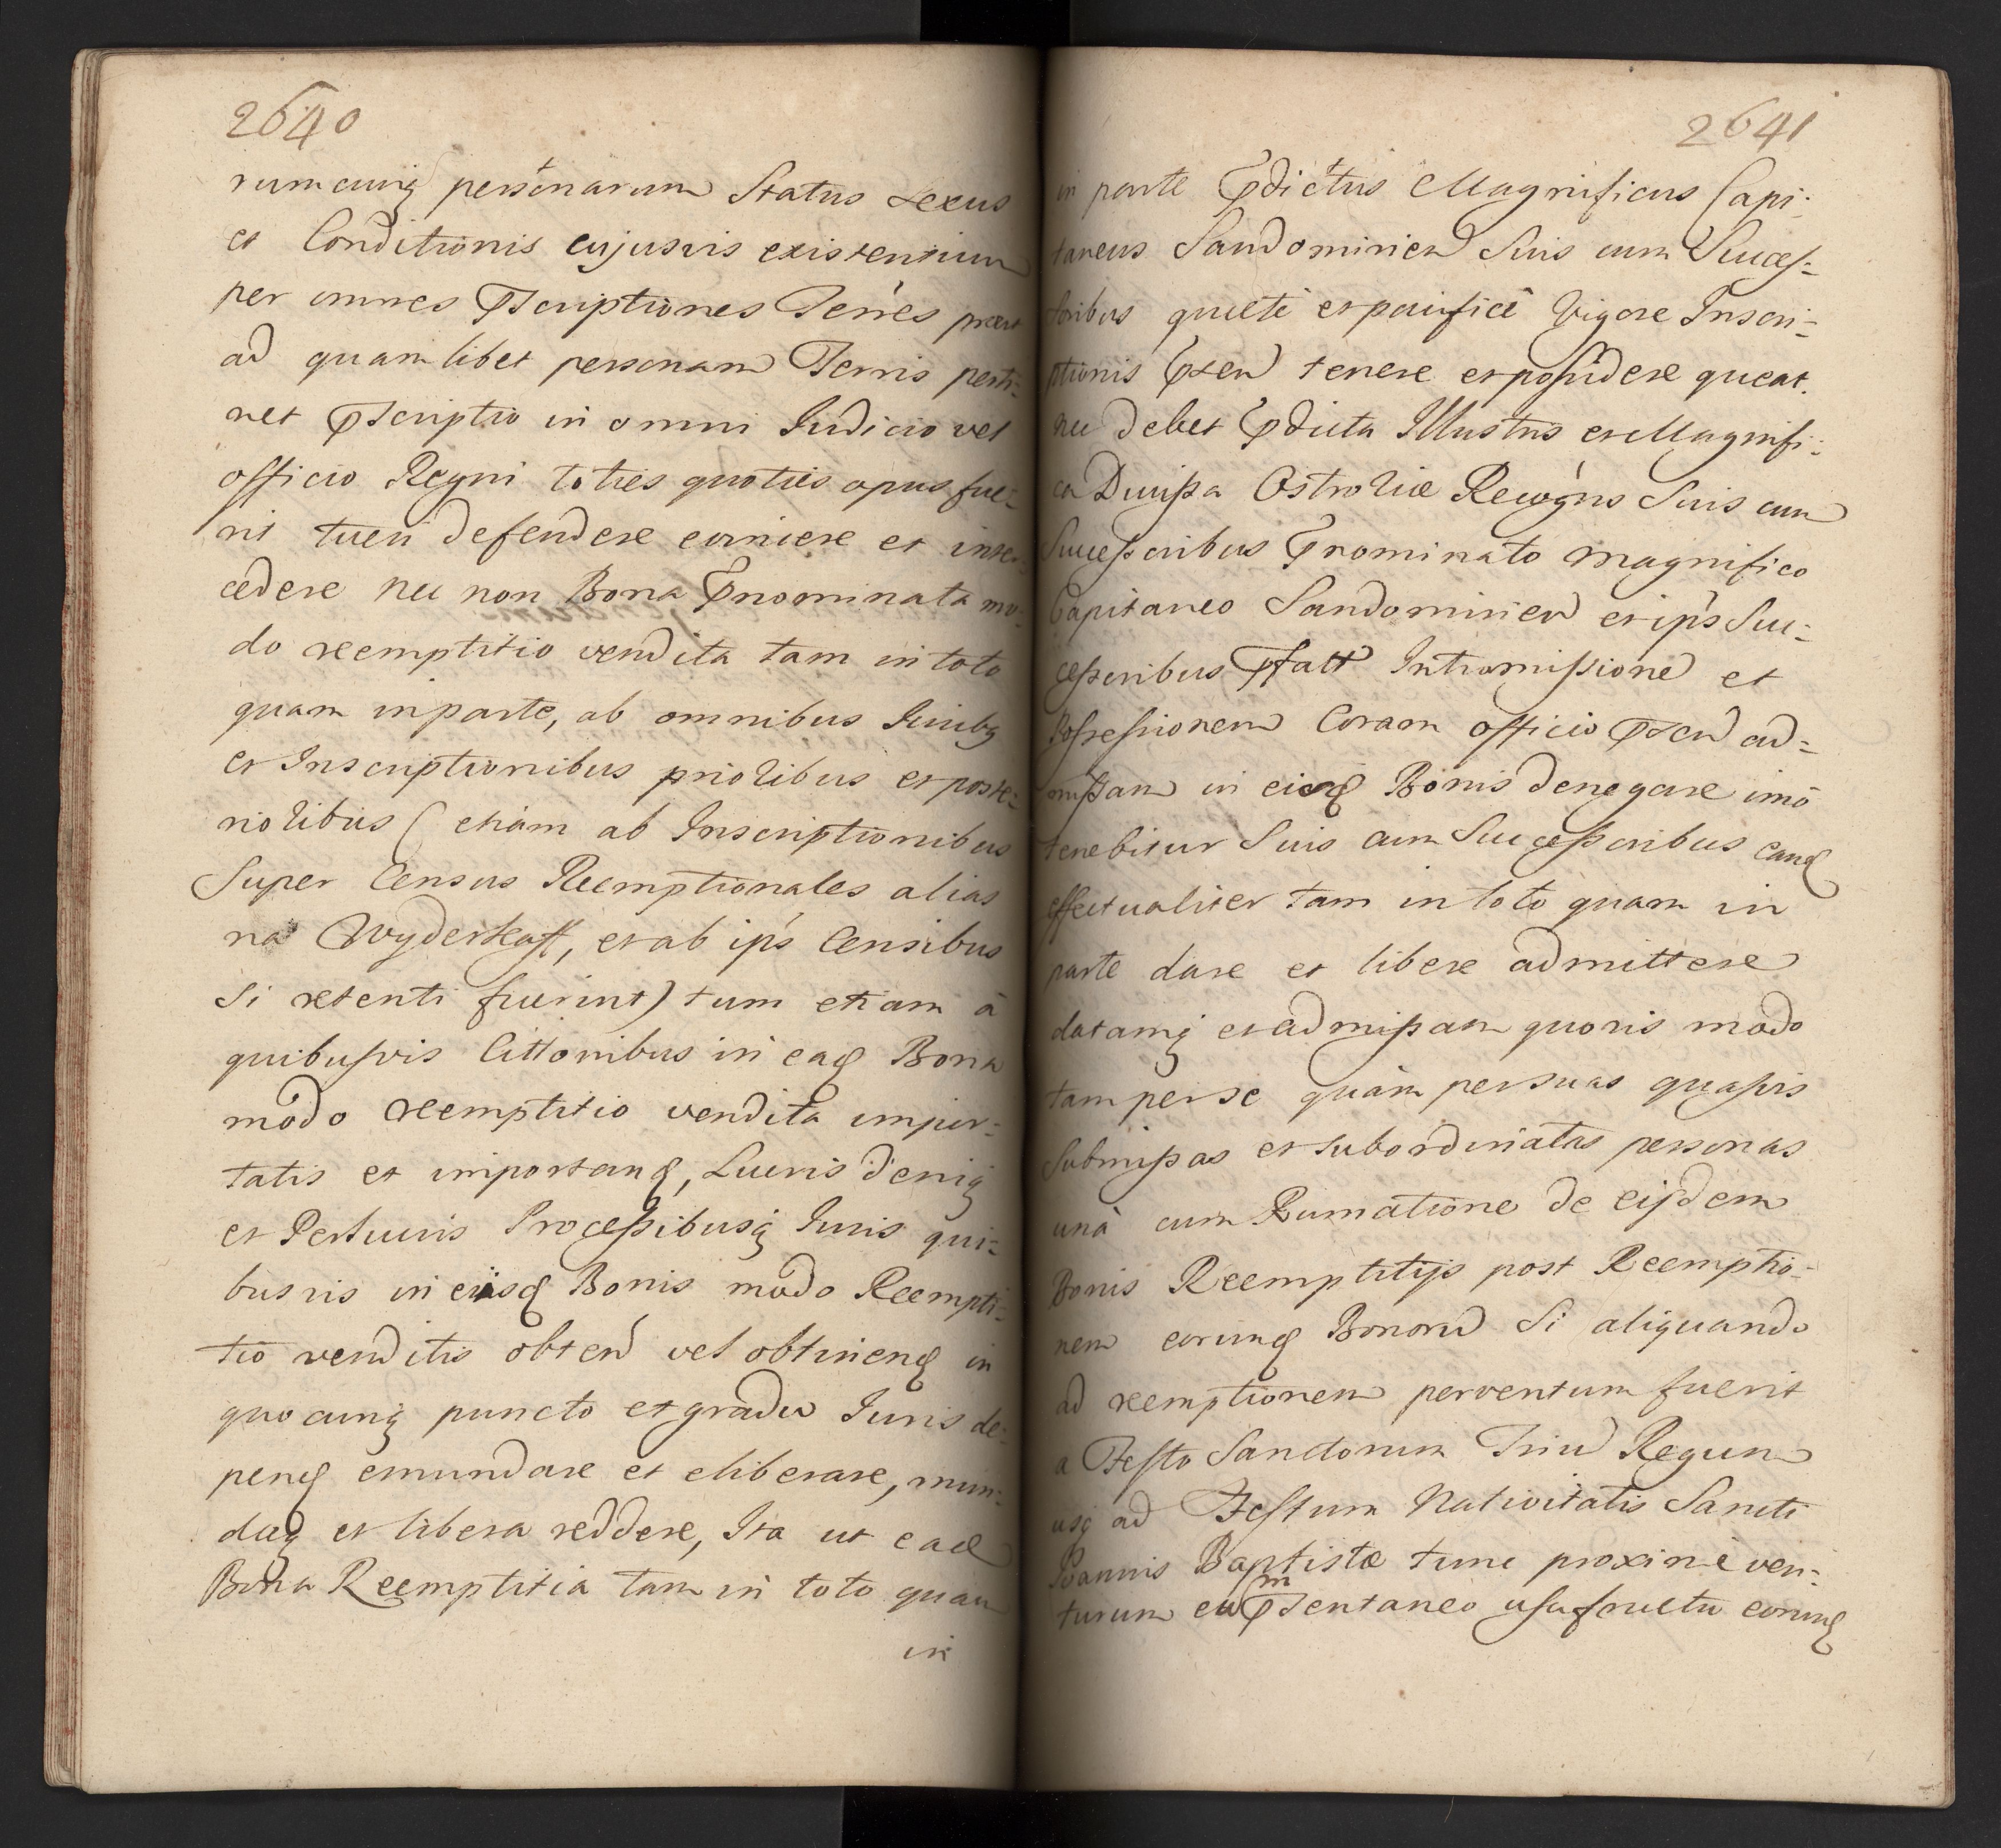 2640
rumcunq personarum Status Sexus
et Conditionis cujusvis existentium
per omnes Pscriptiones Terres prout
ad quamlibet personam Terris perti-
net Pscriptio in omni Iudicio vel
officio Regni toties quoties opus fue-
rit tueri defendere evincere et inter-
cedere nec non Bona Pnominata mo-
do reemptitio vendita tam in toto
quam in parte, ab omnibus Iuribq
et Inscriptionibus prioribus et poste-
rioribus (etiam ab Inscriptionibus
Super Census Reemptionales alias
na Wyderkaff, et ab ips Censibus
si retenti fuerint) tum etiam à
quibusvis littonibus in eaq Bona
modo reemptitio vendita impor-
tatis et importanq, Lucris deniq
et Perlucris Processibusq Iuris qui-
busvis in eiisq Bonis modo Reempti-
tio venditis obten vel obtinenq in
quocunq puncto et gradu Iuris de-
penq emundare et eliberare, mun-
daq et libera reddere, Ita ut eaq
Bona Reemptitia tam in toto quam
in
2641
in parte Pdictus Magnificus Capi-
taneus Sandomirien Suis cum Succes-
soribus quietè et pacificè Vigore Inscri-
ptionis Psen tenere et possidere queat.
nec debet Pdicta Illustris et Magnifi-
ca Ducissa Ostroliæ Recogns Suis cum
Successoribus Pnominato Magnifico
Capitaneo Sandomirien et ips Suc-
cessoribus Pfatt Intromissione et
Possessionem Coram officio Psen ad-
missam in eisq Bonis denegare imò
tenebitur Suis cum Successoribus eanq
effectualiter tam in toto quam in
parte dare et libere admittere
datamq et admissam quovis modo
tam per se quàm per suas quasvis
submissas et subordinatas personas
unà cum Rumatione de eisdem
Bonis Reemptitijs post Reemptio-
nem eorunq Bonoru Si aliquando
ad reemptionem perventum fuerit
a Festo Sanctorum Triu Regum
usq ad Festum Nativitatis Sancti
Joannis Baptistæ tunc proximè ven-
turum cum Psentaneo usufructu eorunq